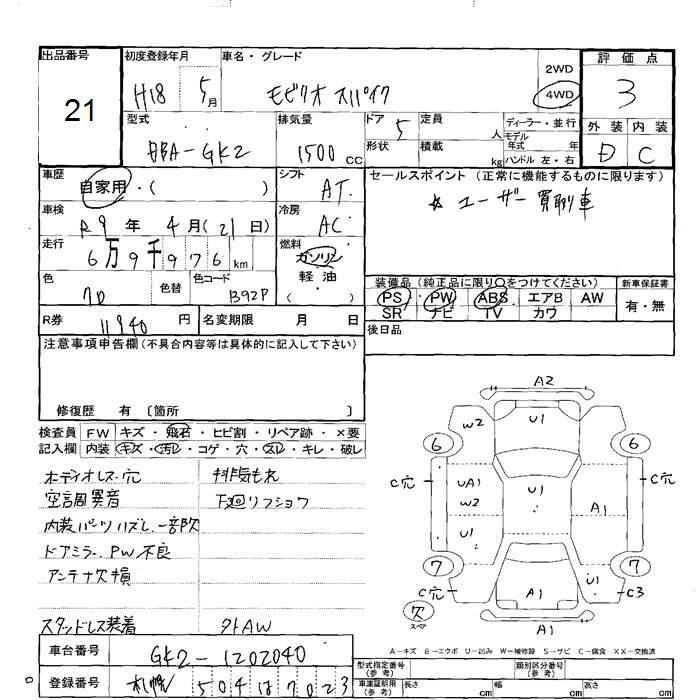 出品番号 初度登録年月 車名・グレード 2WD 評価点
21 H18 5月 モビリオ スパイク 4WD 3
型式 排気量 ドア 5 定員 人 ディーラー・並行 外装 内装
DBA-GK2 1500cc 形状 積載 kg モデル年式 年 ハンドル 左・右 D C
車歴 自家用・( ) シフト AT. セールスポイント (正常に機能するものに限ります)
車検 R9年 4月(21日) 冷房 AC ☆ユーザー買取車
走行 6万9千976km 燃料 ガソリン 軽油 ( )
色 色替 色コード B92P 装備品 (純正品に限り○をつけてください) 新車保証書
PS・PW・ABS・エアB AW 有・無
SR ナビ TV カワ
R券 11940円 名変期限 月 日 後日品
注意事項申告欄(不具合内容等は具体的に記入して下さい)
修復歴 有 〔箇所 〕
検査員 FW キズ・飛石・ヒビ割・リペア跡・×要
記入欄 内装 キズ・汚レ・コゲ・穴・スレ・キレ・破レ
ボディオレス・穴 排気もれ
空調異音 下廻リフショク
内装パーツハズレ、一部欠
ドアミラー、PW不良
アンテナ欠損
スタッドレス装着 外AW
A2
W2 U1
6 6
C穴 UA1 U1 C穴
W2 A1
U1
7 7
C穴 A1 U1 C3
欠 スペア A1
A-キズ E-エクボ U-凹み W-補修跡 S-サビ C-腐食 XX-交換済
車台番号 GK2-1202040 型式指定番号(参考) 類別区分番号(参考)
登録番号 札幌 504 ほ 7023 車庫証明用(参考) 長さ cm 幅 cm 高さ cm